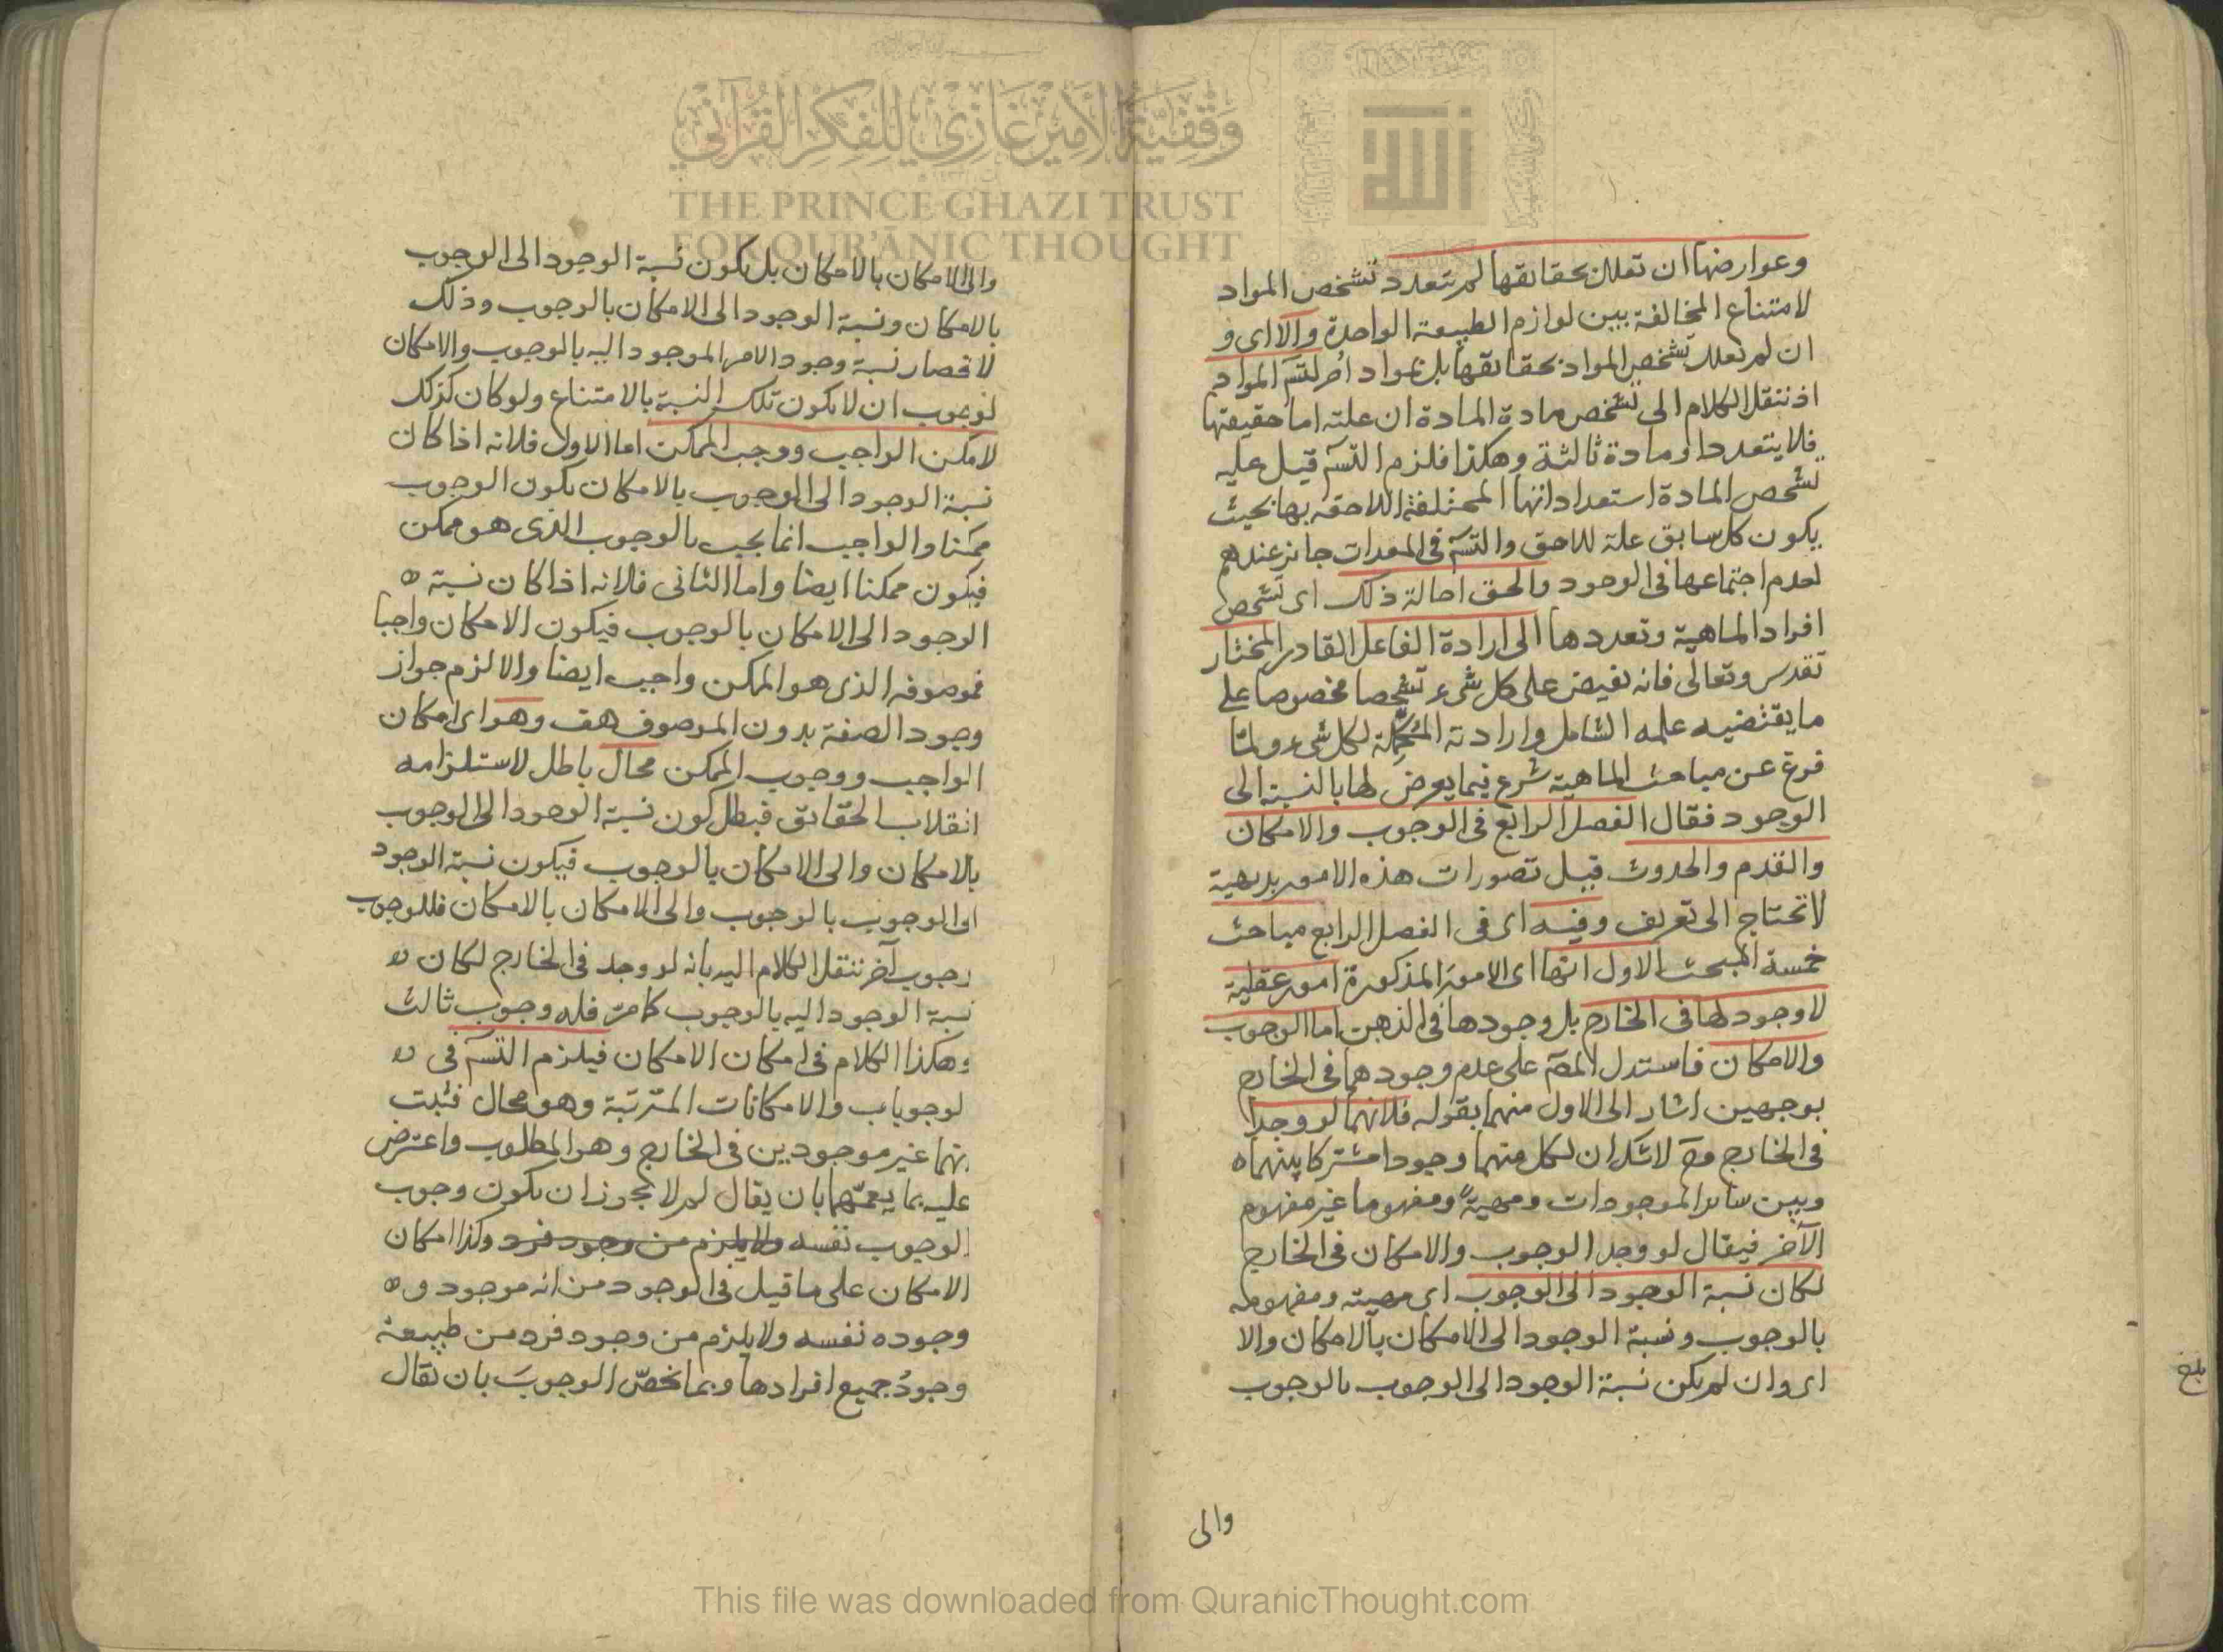 وعوارضها ان تعلل بحقائقها لم تتعدد تشخص المواد
لامتناع المخالفة بين لوازم الطبيعة الواحدة والا اى و
ان لم تعلل تشخص المواد بحقائقها بل بمواد اخر لتسـ المواد
اذ ننقل الكلام الى تشخص مادة المادة ان علته اما حقيقتها
فلا يتعدد او مادة ثالثة وهكذا فلزم التسـ قيل عليه
تشخص المادة استعداداتها المختلفة اللاحقة بها بحيث
يكون كل سابق علة للاحق والتسـ فى المعدات جائز عندهم
لعدم اجتماعها فى الوجود والحق احالة ذلك اى تشخص
افراد الماهية وتعددها الى ارادة الفاعل القادر المختار
تقدس وتعالى فانه يفيض على كل شىء تشخصا مخصوصا على
ما يقتضيه علمه الشامل وارادته لكل شىء ولما
فرغ عن مباحث الماهية شرع فيما يعرض لها بالنسبة الى
الوجود فقال الفصل الرابع فى الوجوب والامكان
والقدم والحدوث قيل تصورات هذه الامور بديهية
لا تحتاج الى تعريف وفيه اى فى الفصل الرابع مباحث
خمسة المبحث الاول انها اى الامور المذكورة امور عقلية
لا وجود لها فى الخارج بل وجودها فى الذهن اما الوجوب
والامكان فاستدل المصـ على عدم وجودهما فى الخارج
بوجهين اشار الى الاول منهما بقوله فلانهما لو وجدا
فى الخارج وح لا شك ان لكل منهما وجودا مشتركا بينهما ه
وبين سائر الموجودات ومهية ومفهوما غير مفهوم
الآخر فيقال لو وجد الوجوب والامكان فى الخارج
لكان نسبة الوجود الى الوجوب اى مهيته ومفهومه
بالوجوب ونسبة الوجود الى الامكان بالامكان والا
اى وان لم يكن نسبة الوجود الى الوجوب بالوجوب
والى
بلغ
والى الامكان بالامكان بل يكون نسبة الوجود الى الوجوب
بالامكان ونسبة الوجود الى الامكان بالوجوب وذلك
لانحصار نسبة وجود الامر الموجود اليه بالوجوب والامكان
لوجوب ان لا يكون تلك النسبة بالامتناع ولو كان كذلك
لامكن الواجب ووجب الممكن اما الاول فلانه اذا كان
نسبة الوجود الى الوجوب بالامكان يكون الوجوب
ممكنا والواجب انما يجب بالوجوب الذى هو ممكن
فيكون ممكنا ايضا واما الثانى فلانه اذا كان نسبة ه
الوجود الى الامكان بالوجوب فيكون الامكان واجبا
فموصوفه الذى هو الممكن واجب ايضا والا لزم جواز
وجود الصفة بدون الموصوف هف وهو اى امكان
الواجب ووجوب الممكن محال باطل لاستلزامه
انقلاب الحقائق فبطل كون نسبة الوجود الى الوجوب
بالامكان والى الامكان بالوجوب فيكون نسبة الوجود
الى الوجوب بالوجوب والى الامكان بالامكان فللوجوب
وجوب آخر ننقل الكلام اليه بانه لو وجد فى الخارج لكان
نسبة الوجود اليه بالوجوب كما مر فله وجوب ثالث
وهكذا الكلام فى امكان الامكان فيلزم التسـ فى
لوجوبات والامكانات المترتبة وهو محال فثبت
انهما غير موجودين فى الخارج وهو المطلوب واعترض
عليه بما يعمهما بان يقال لم لا يجوز ان يكون وجوب
الوجوب نفسه ولا يلزم من وجود فرد وكذا امكان
الامكان على ما قيل فى الوجود من انه موجود و ه
وجوده نفسه ولا يلزم من وجود فرد من طبيعة
وجودُ جميع افرادها وبما يخصّ الوجوبَ بان يقال
وقفية الأمير غازي للفكر القرآني
THE PRINCE GHAZI TRUST
FOR QUR'ĀNIC THOUGHT
الله
This file was downloaded from QuranicThought.com